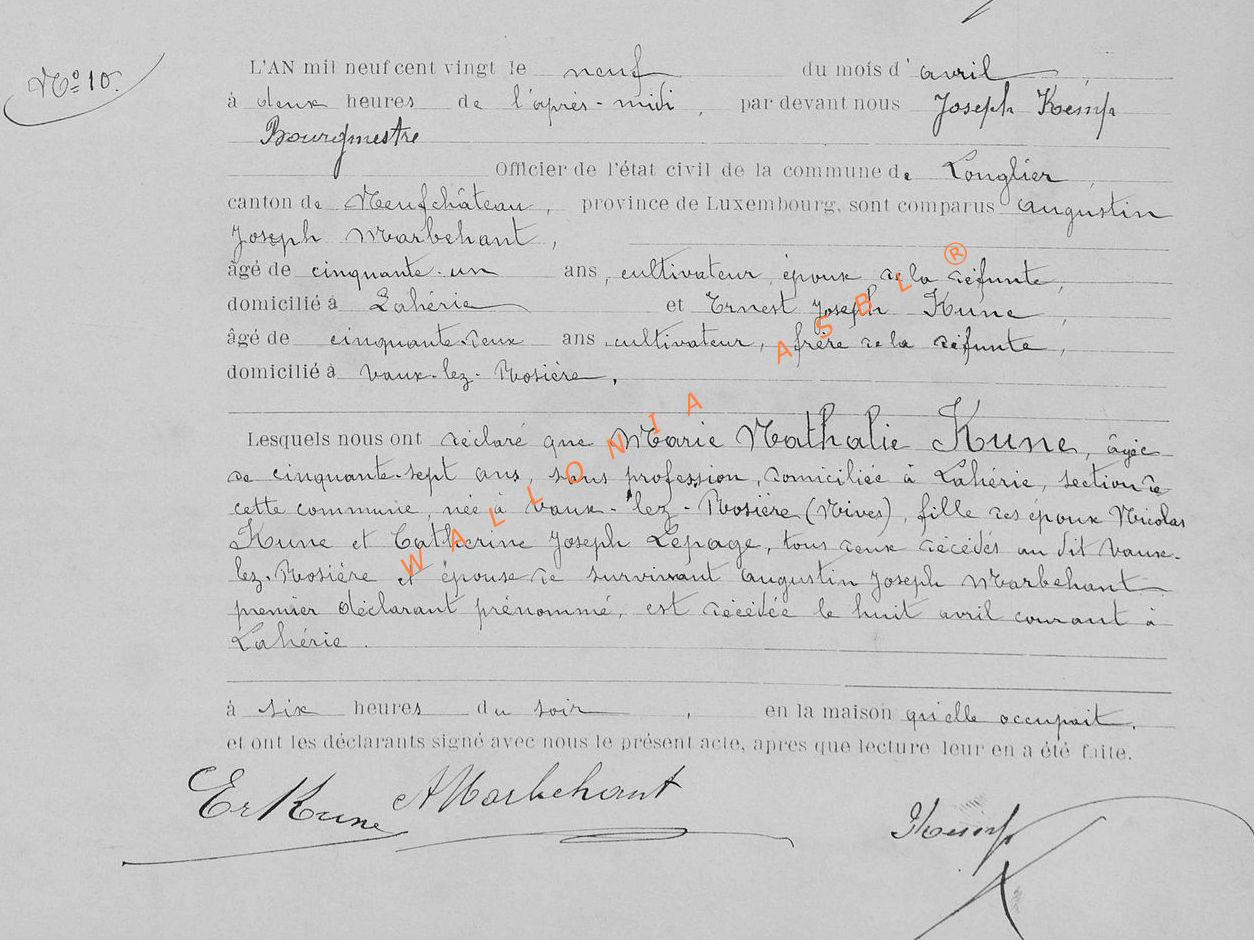 No 10.
L'AN mil neuf cent vingt le neuf du mois d'avril,
à deux heures de l'après-midi, par devant nous Joseph Kemp
Bourgmestre
Officier de l'état civil de la commune de Longlier,
canton de Neufchâteau, province de Luxembourg, sont comparus Augustin
Joseph Marbehant,
âgé de cinquante-un ans, cultivateur, époux de la défunte,
domicilié à Lahérie et Ernest Joseph Kune,
âgé de cinquante-deux ans, cultivateur, frère de la défunte,
domicilié à Vaux-lez-Rosière.
Lesquels nous ont déclaré que Marie Nathalie Kune, âgée
de cinquante-sept ans, sans profession, domiciliée à Lahérie, section de
cette commune, née à Vaux-lez-Rosière (Nives), fille des époux Nicolas
Kune et Catherine Joseph Lepage, tous deux décédés au dit Vaux-
lez-Rosière et épouse de survivant Augustin Joseph Marbehant
premier déclarant prénommé, est décédée le huit avril courant à
Lahérie.
à six heures du soir, en la maison qu'elle occupait.
et ont les déclarants signé avec nous le présent acte, apres que lecture leur en a été faite.
Er Kune A Marbehant
Kemp
WALLONIA ASBL ®